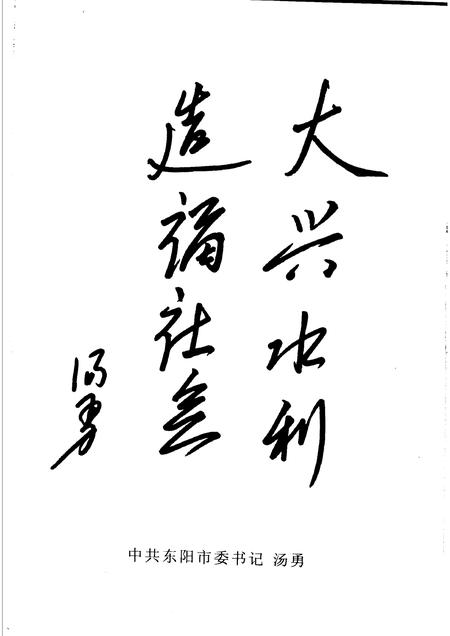 大兴水利
造福社会
汤勇
中共东阳市委书记 汤勇